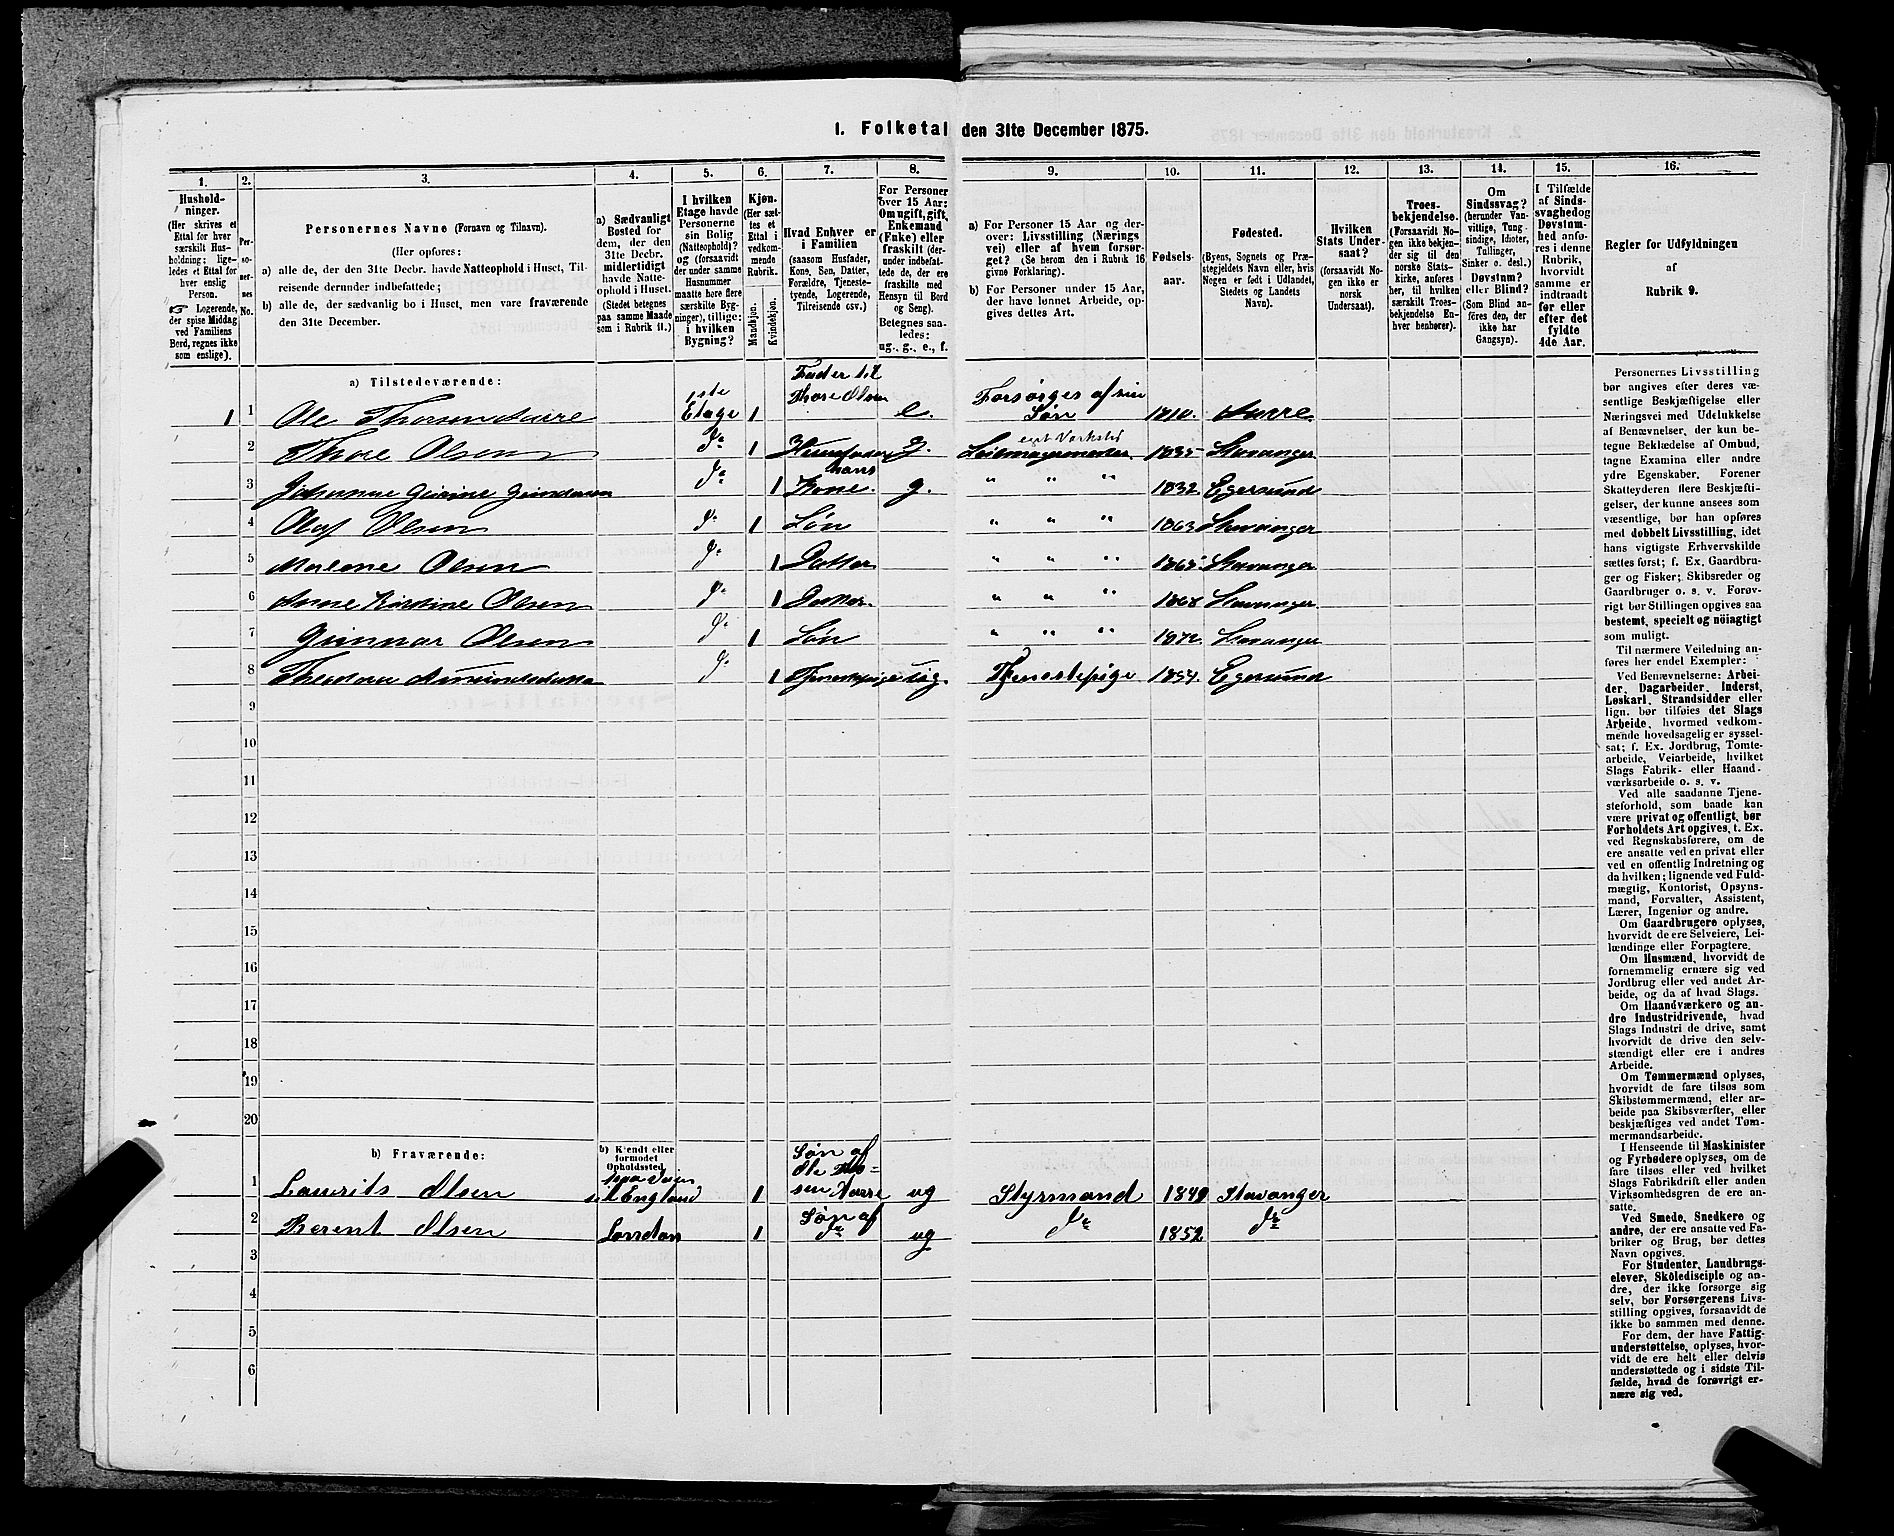 1. Folketal den 31te December 1875.
1. 2. 3. 4. 5. 6. 7. 8. 9. 10. 11. 12. 13. 14. 15. 16.
Hushold-
ninger.
(Her skrives et
Ettal for hver
særskilt Hus-
holdning; lige-
ledes et Ettal for
hver enslig
Person.
☞ Logerende,
der spise Middag
ved Familiens
Bord, regnes ikke
som enslige).
Per-
so-
ner-
nes
No.
Personernes Navne (Fornavn og Tilnavn).
(Her opføres:
a) alle de, der den 31te Decbr. havde Natteophold i Huset, Til-
reisende derunder indbefattede;
b) alle de, der sædvanlig bo i Huset, men vare fraværende
den 31te December.
a) Sædvanligt
Bosted for
dem, der den
31te Decbr.
midlertidigt
havde Natte-
ophold i Huset.
(Stedet betegnes
paa samme Maade
som i Rubrik 11.)
I hvilken
Etage havde
Personerne
sin Bolig
(Natteophold)?
og (forsaavidt
der under samme
Husnummer
maatte høre flere
særskilte Byg-
ninger), tillige:
i hvilken
Bygning?
Kjøn.
(Her sæt-
tes et
Ettal i
vedkom-
mende
Rubrik.
Mandkjøn.
Kvindekjøn.
Hvad Enhver er
i Familien
(saasom Husfader,
Kone, Søn, Datter,
Forældre, Tjeneste-
tyende, Logerende,
Tilreisende osv.)
For Personer
over 15 Aar:
Om ugift, gift,
Enkemand
(Enke) eller
fraskilt (der-
under indbefat-
tede de, der ere
fraskilte med
Hensyn til Bord
og Seng).
Betegnes saa-
ledes:
ug., g., e., f.
a) For Personer 15 Aar og der-
over: Livsstilling (Nærings
vei) eller af hvem forsør-
get? (Se herom den i Rubrik 16
givne Forklaring).
b) For Personer under 15 Aar,
der have lønnet Arbeide, op-
gives dettes Art.
Fødsels-
aar.
Fødested.
(Byens, Sognets og Præ-
stegjeldets Navn eller, hvis
Nogen er født i Udlandet,
Stedets og Landets
Navn).
Hvilken
Stats Under-
saat?
(forsaavidt No-
gen ikke er
norsk
Undersaat).
Troes-
bekjendelse.
(Forsaavidt No-
gen ikke bekjen-
der sig til den
norske Stats-
kirke, anføres
her, til hvilken
særskilt Troes-
bekjendelse En-
hver henhører).
Om
Sindssvag?
(herunder Van-
vittige, Tung
sindige, Idioter,
Tullinger,
Sinker o. desl.)
Døvstum?
eller Blind?
(Som Blind an-
føres den, der
ikke har
Gangsyn).
I Tilfælde
af Sinds-
svaghed og
Døvstum-
hed anfø-
res i denne
Rubrik,
hvorvidt
samme er
indtraadt
før eller
efter det
fyldte
4de Aar.
Regler for Udfyldningen
af
Rubrik 9.
a) Tilstedeværende:
1 1 Ole Thorsen Aarre 1ste Etage 1 Fader til Thore Olsen e. Forsørges af sin Søn 1810. Aarre
2 Thore Olsen do 1 Huusfader g. eget Værksted 1835 Stavanger
3 do 1 hans Kone. g. " " " 1832. Egersund
4 Olaf Olsen do 1 Søn " " " 1863 Stavanger
5 Malene Olsen do 1 Datter " " " 1865 Stavanger
6 Anne Kirstine Olsen do 1 Datter. " " " 1868 Stavanger
7 Gunnar Olsen do 1 Søn " " " 1872 Stavanger
8 Theodora Amundsdatter do 1 Tjenestepige ug. Tjenestepige 1854. Egersund
9
10
11
12
13
14
15
16
17
18
19
20
b) Fraværende:
b) Kjendt eller
formodet
Opholdssted.
1 Laurits Olsen paa Veien til England 1 Søn af Ole Thorsen Aarre ug Styrmand 1849 Stavanger
2 Berent Olsen London 1 Søn af do ug do 1852 do
3
4
5
6
Personernes Livsstilling
bør angives efter deres væ-
sentlige Beskjæftigelse eller
Næringsvei med Udelukkelse
af Benævnelser, der kun be-
tegne Beklædelse af Ombud,
tagne Examina eller andre
ydre Egenskaber. Forener
Skatteyderen flere Beskjæfti-
gelser, der kunne ansees som
væsentlige, bør han opføres
med dobbelt Livsstilling, idet
hans vigtigste Erhvervskilde
sættes først; f. Ex. Gaardbru-
ger og Fisker; Skibsreder og
Gaardbruger o. s. v. Forøv-
rigt bør Stillingen opgives saa
bestemt, specielt og nöiagtigt
som muligt.
Til nærmere Veiledning an-
føres her endel Exempler:
Ved Benævnelserne: Arbei-
der, Dagarbeider, Inderst,
Løskarl, Strandsidder eller
lign. bør tilføies det Slags
Arbeide, hvormed vedkom-
mende hovedsagelig er syssel-
sat; f. Ex. Jordbrug, Tomte-
arbeide, Veiarbeide, hvilket
Slags Fabrik- eller Haand-
værksarbeide o. s. v.
Ved alle saadanne Tjene-
steforhold, som baade kan
være privat og offentligt, bør
Forholdets Art opgives, t. Ex.
ved Regnskabsførere, om de
ere ansatte ved en privat eller
ved en offentlig Indretning og
da hvilken; lignende ved Fuld-
mægtig, Kontorist, Opsyns-
mand, Forvalter, Assistent,
Lærer, Ingeniør og andre.
Om Gaardbrugere oplyses,
hvorvidt de ere Selveiere, Lei-
lændinge eller Forpagtere.
Om Husmænd, hvorvidt de
fornemmelig ernære sig ved
Jordbrug eller ved andet Ar-
beide, og da af hvad Slags.
Om Haandværkere og an-
dre Industridrivende, hvad
Slags Industri de drive, samt
hvorvidt de drive den selv-
stændigt eller ere i andres
Arbeide.
Om Tømmermænd oplyses,
hvorvidt de fare tilsøs som
Skibstømmermænd, eller ar-
beide paa Skibsværfter, eller
beskjæftiges ved andet Tøm-
mermandsarbeide.
I Henseende til Maskinister
og Fyrbødere oplyses, om de
fare tilsøs eller ved hvilket
Slags Fabrikdrift eller anden
Virksomhedsgren de ere an-
satte.
Ved Smede, Snedkere og
andre, der ere ansatte ved Fa-
briker og Brug, bør dettes
Navn opgives.
For Studenter, Landbrugs-
elever, Skôledisciple og an-
dre, der ikke forsørge sig
selv, bør Forsørgerens Livs-
stilling opgives, forsaavidt de
ikke bo sammen med denne.
For dem, der have Fattig-
understøttelse, oplyses, hvor-
vidt de ere helt eller delvis
understøttede og i sidste Til-
fælde, hvad de forøvrigt er-
nære sig ved.